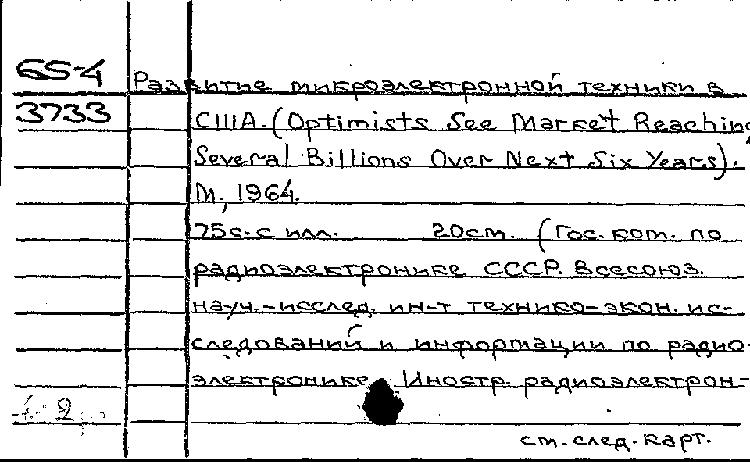 65-4
Развитие микроэлектронной техники в
3733
США. (Optimists See Market Reaching
Several Billions Over Next Six Years).
М., 1964.
75с. с илл. 20см. (Гос. ком. по
радиоэлектронике СССР. Всесоюз.
науч.-исслед. ин-т технико-экон. ис-
следований и информации по радио-
электронике. Иностр. радиоэлектрон-
см. след. карт.